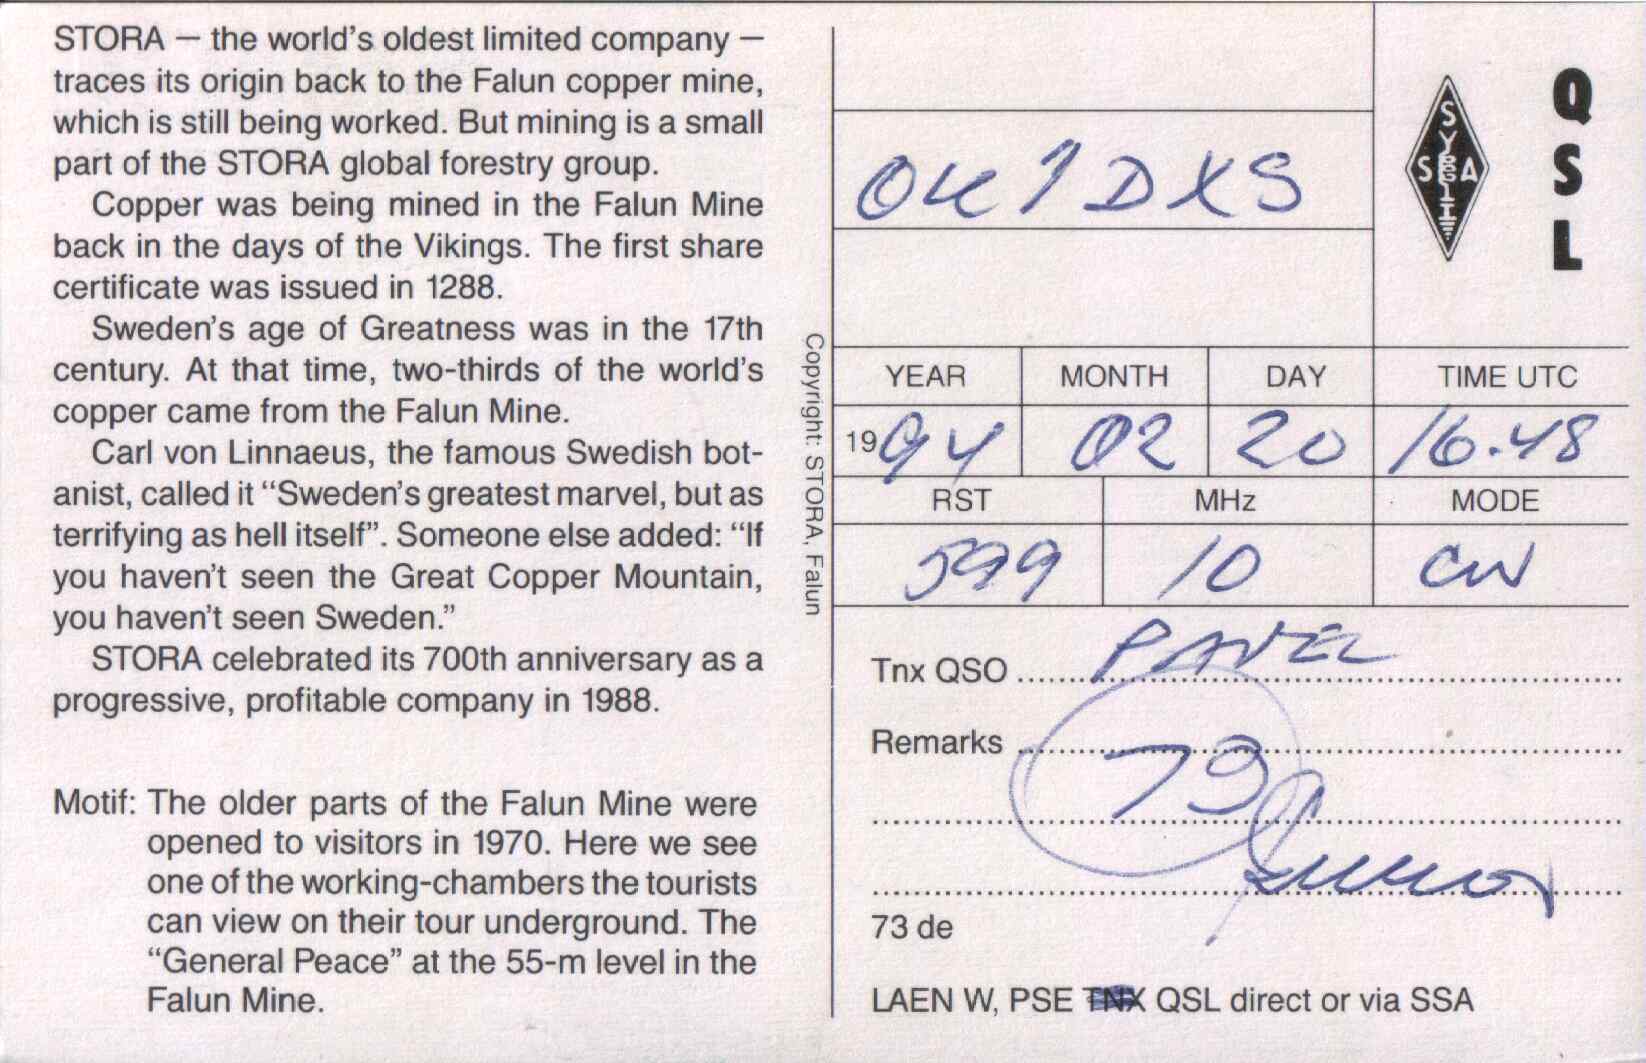 STORA — the world's oldest limited company —
traces its origin back to the Falun copper mine,
which is still being worked. But mining is a small
part of the STORA global forestry group.
Copper was being mined in the Falun Mine
back in the days of the Vikings. The first share
certificate was issued in 1288.
Sweden's age of Greatness was in the 17th
century. At that time, two-thirds of the world's
copper came from the Falun Mine.
Carl von Linnaeus, the famous Swedish bot-
anist, called it “Sweden's greatest marvel, but as
terrifying as hell itself”. Someone else added: “If
you haven't seen the Great Copper Mountain,
you haven't seen Sweden.”
STORA celebrated its 700th anniversary as a
progressive, profitable company in 1988.
Motif: The older parts of the Falun Mine were
opened to visitors in 1970. Here we see
one of the working-chambers the tourists
can view on their tour underground. The
“General Peace” at the 55-m level in the
Falun Mine.
Copyright: STORA, Falun
OK1DXS
SSA
QSL
YEAR MONTH DAY TIME UTC
1994 02 20 16.48
RST MHz MODE
599 10 CW
Tnx QSO PAVEL
Remarks
73
73 de
LAEN W, PSE TNX QSL direct or via SSA